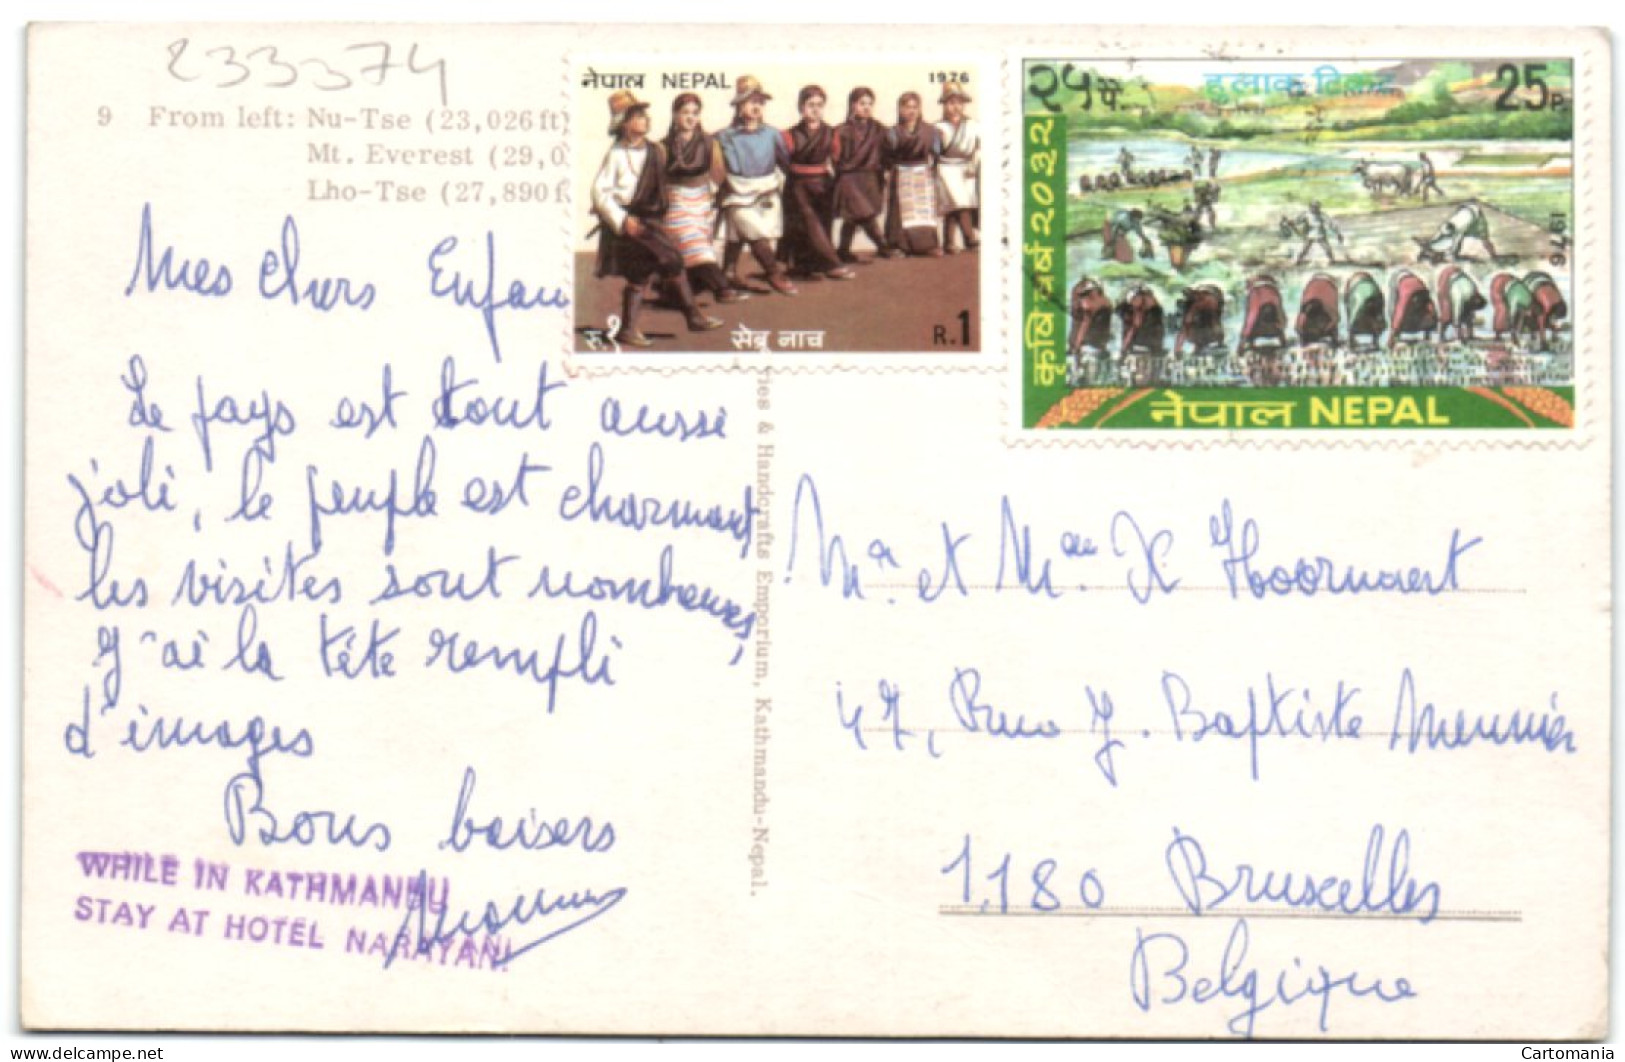 233374
9 From left: Nu-Tse (23,026ft)
Mt. Everest (29,0
Lho-Tse (27,890f
नेपाल NEPAL 1976
रु.१ सेब्रू नाच R.1
२५पै हुलाक टिकट 25P.
कृषि वर्ष २०३२
1976
नेपाल NEPAL
Mes chers Enfan
Le pays est tout aussi
joli, le peuple est charmant,
les visites sont nombreuses,
J'ai la tête rempli
d'images
Bons baisers
WHILE IN KATHMANDU
STAY AT HOTEL NARAYANI
ries & Handcrafts Emporium, Kathmandu-Nepal.
et Hoornaert
47, Rue J. Baptiste Meunier
1180 Bruxelles
Belgique
delcampe.net
Cartomania